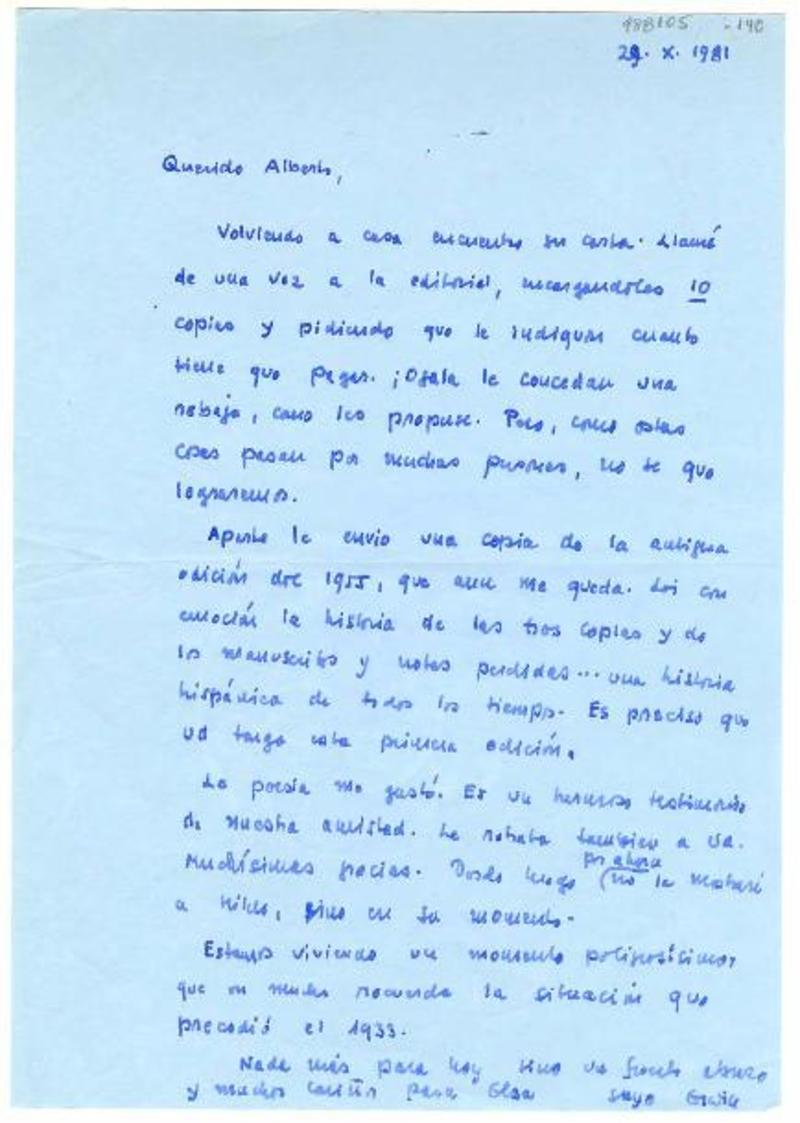 988105 -190
29. X. 1981
Querido Alberto,
Volviendo a casa encuentro su carta. Llamé
de una vez a la editorial, encargandoles 10
copias y pidiendo que le indiquen cuanto
tiene que pagar. ¡Ojala le concedan una
rebaja, como les propuse. Pero, como estas
cosas pasan por muchas personas, no se que
lograremos.
Aparte le envio una copia de la antigua
edición de 1955, que aun me queda. Leí con
emoción la historia de las tres copias y de
los manuscritos y notas perdidas... una historia
hispánica de todos los tiempos. Es preciso que
Ud tenga esta primera edición.
La poesía me gustó. Es un hermoso testimonio
de nuestra amistad. Le retrata también a Ud.
Muchísimas gracias. Desde luego (no le mostraré
por ahora
a Hilde, sino en su momento.
Estamos viviendo un momento peligrosísimo,
que en mucho recuerda la situación que
precedió el 1933.
Nada más para hoy sino un fuerte abrazo
y muchos cariños para Elsa suyo Erwin